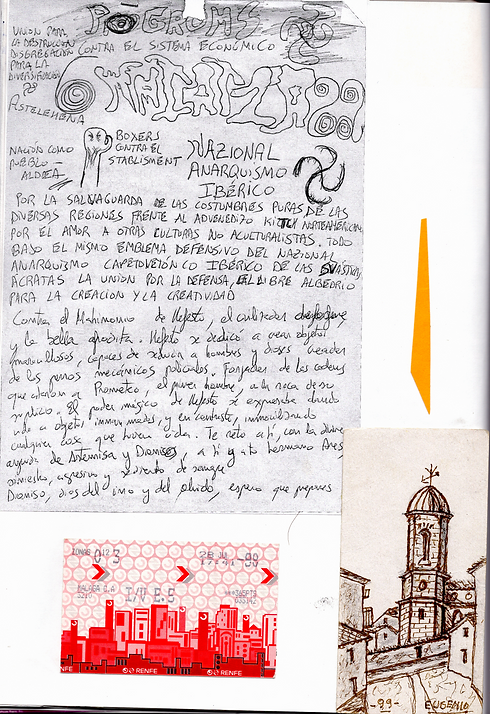 POGROMS
UNION PARA
LA DESTRUCCION
DISGREGACIÓN CONTRA EL SISTEMA ECONÓMICO
PARA LA
DIVERSIFICACIÓN
ASTELEHENA
BOXERS
CONTRA EL
STABLISMENT
NACIÓN COMO
PUEBLO-
ALDEA
NAZIONAL
ANARQUISMO
IBÉRICO
POR LA SALVAGUARDA DE LAS COSTUMBRES PURAS DE LAS
DIVERSAS REGIONES FRENTE AL ADVENEDIZO KITCH NORTEAMERICANO
POR EL AMOR A OTRAS CULTURAS NO ACULTURALISTAS. TODO
BAJO EL MISMO EMBLEMA DEFENSIVO DEL NAZIONAL
ANARQUISMO CARPETOVETÓNICO IBÉRICO DE LAS
ÁCRATAS LA UNION POR LA DEFENSA, EL LIBRE ALBEDRIO
PARA LA CREACION Y LA CREATIVIDAD
Contra el Matrimonio de Hefesto, el
y la bella afrodita. Hefesto se dedicó a crear objetos
maravillosos, capaces de seducir a hombres y dioses creador
de los perros mecánicos policiales. Forjador de las cadenas
que ataron a Prometeo, el primer hombre, a la roca de su
suplicio. El poder mágico de Hefesto se expresaba dando
vida a objetos inanimados, y en contraste, inmovilizando
cualquier cosa que tuviera vida. Te reto a tí, con la divina
ayuda de Artemisa y Dionisos, a tí y a tu hermano Ares
agresivo y sediento de sangre
Dioniso, dios del vino y del olvido, espero que prepares
ZONAS 012 3
28 JUL
-99
I/V E.S
RENFE
RENFE
RENFE
-99-
EUGENIO